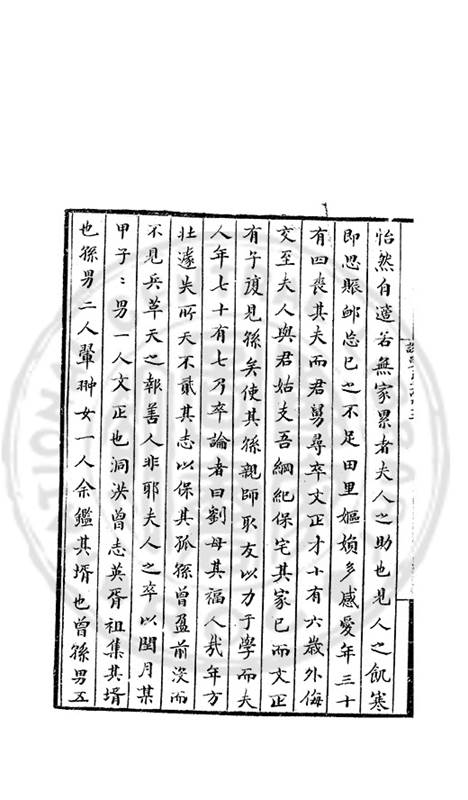 怡然自適若無家累者夫人之助也見人之飢寒
即思賑邺忘已之不足田里嫗媍多感愛年三十
有四喪其夫而君舅尋卒文正才十有六歲外侮
交至夫人與君始支吾綱紀保宅其家已而文正
有子復見孫矣使其孫親師取友以力于學而夫
人年七十有七乃卒論者曰劉母其福人哉年方
壮遽失所天不貳其志以保其孤孫曾盈前沒而
不見兵革天之報善人非耶夫人之卒以閏月某
甲子：男一人文正也洞洪曾志英胥祖集其壻
也孫男二人翬翀女一人余鑑其壻也曾孫男五